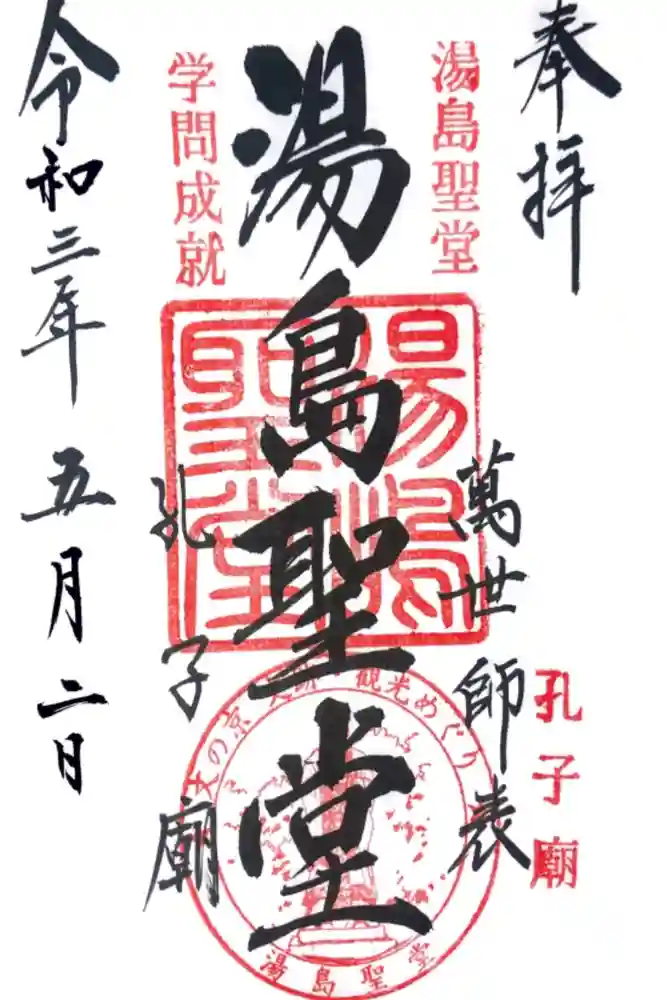 奉拝
湯島聖堂
萬世師表
孔子廟
湯島聖堂
湯島聖堂
学問成就
孔子廟
令和三年 五月二日
湯島聖堂
文の京
観光めぐり